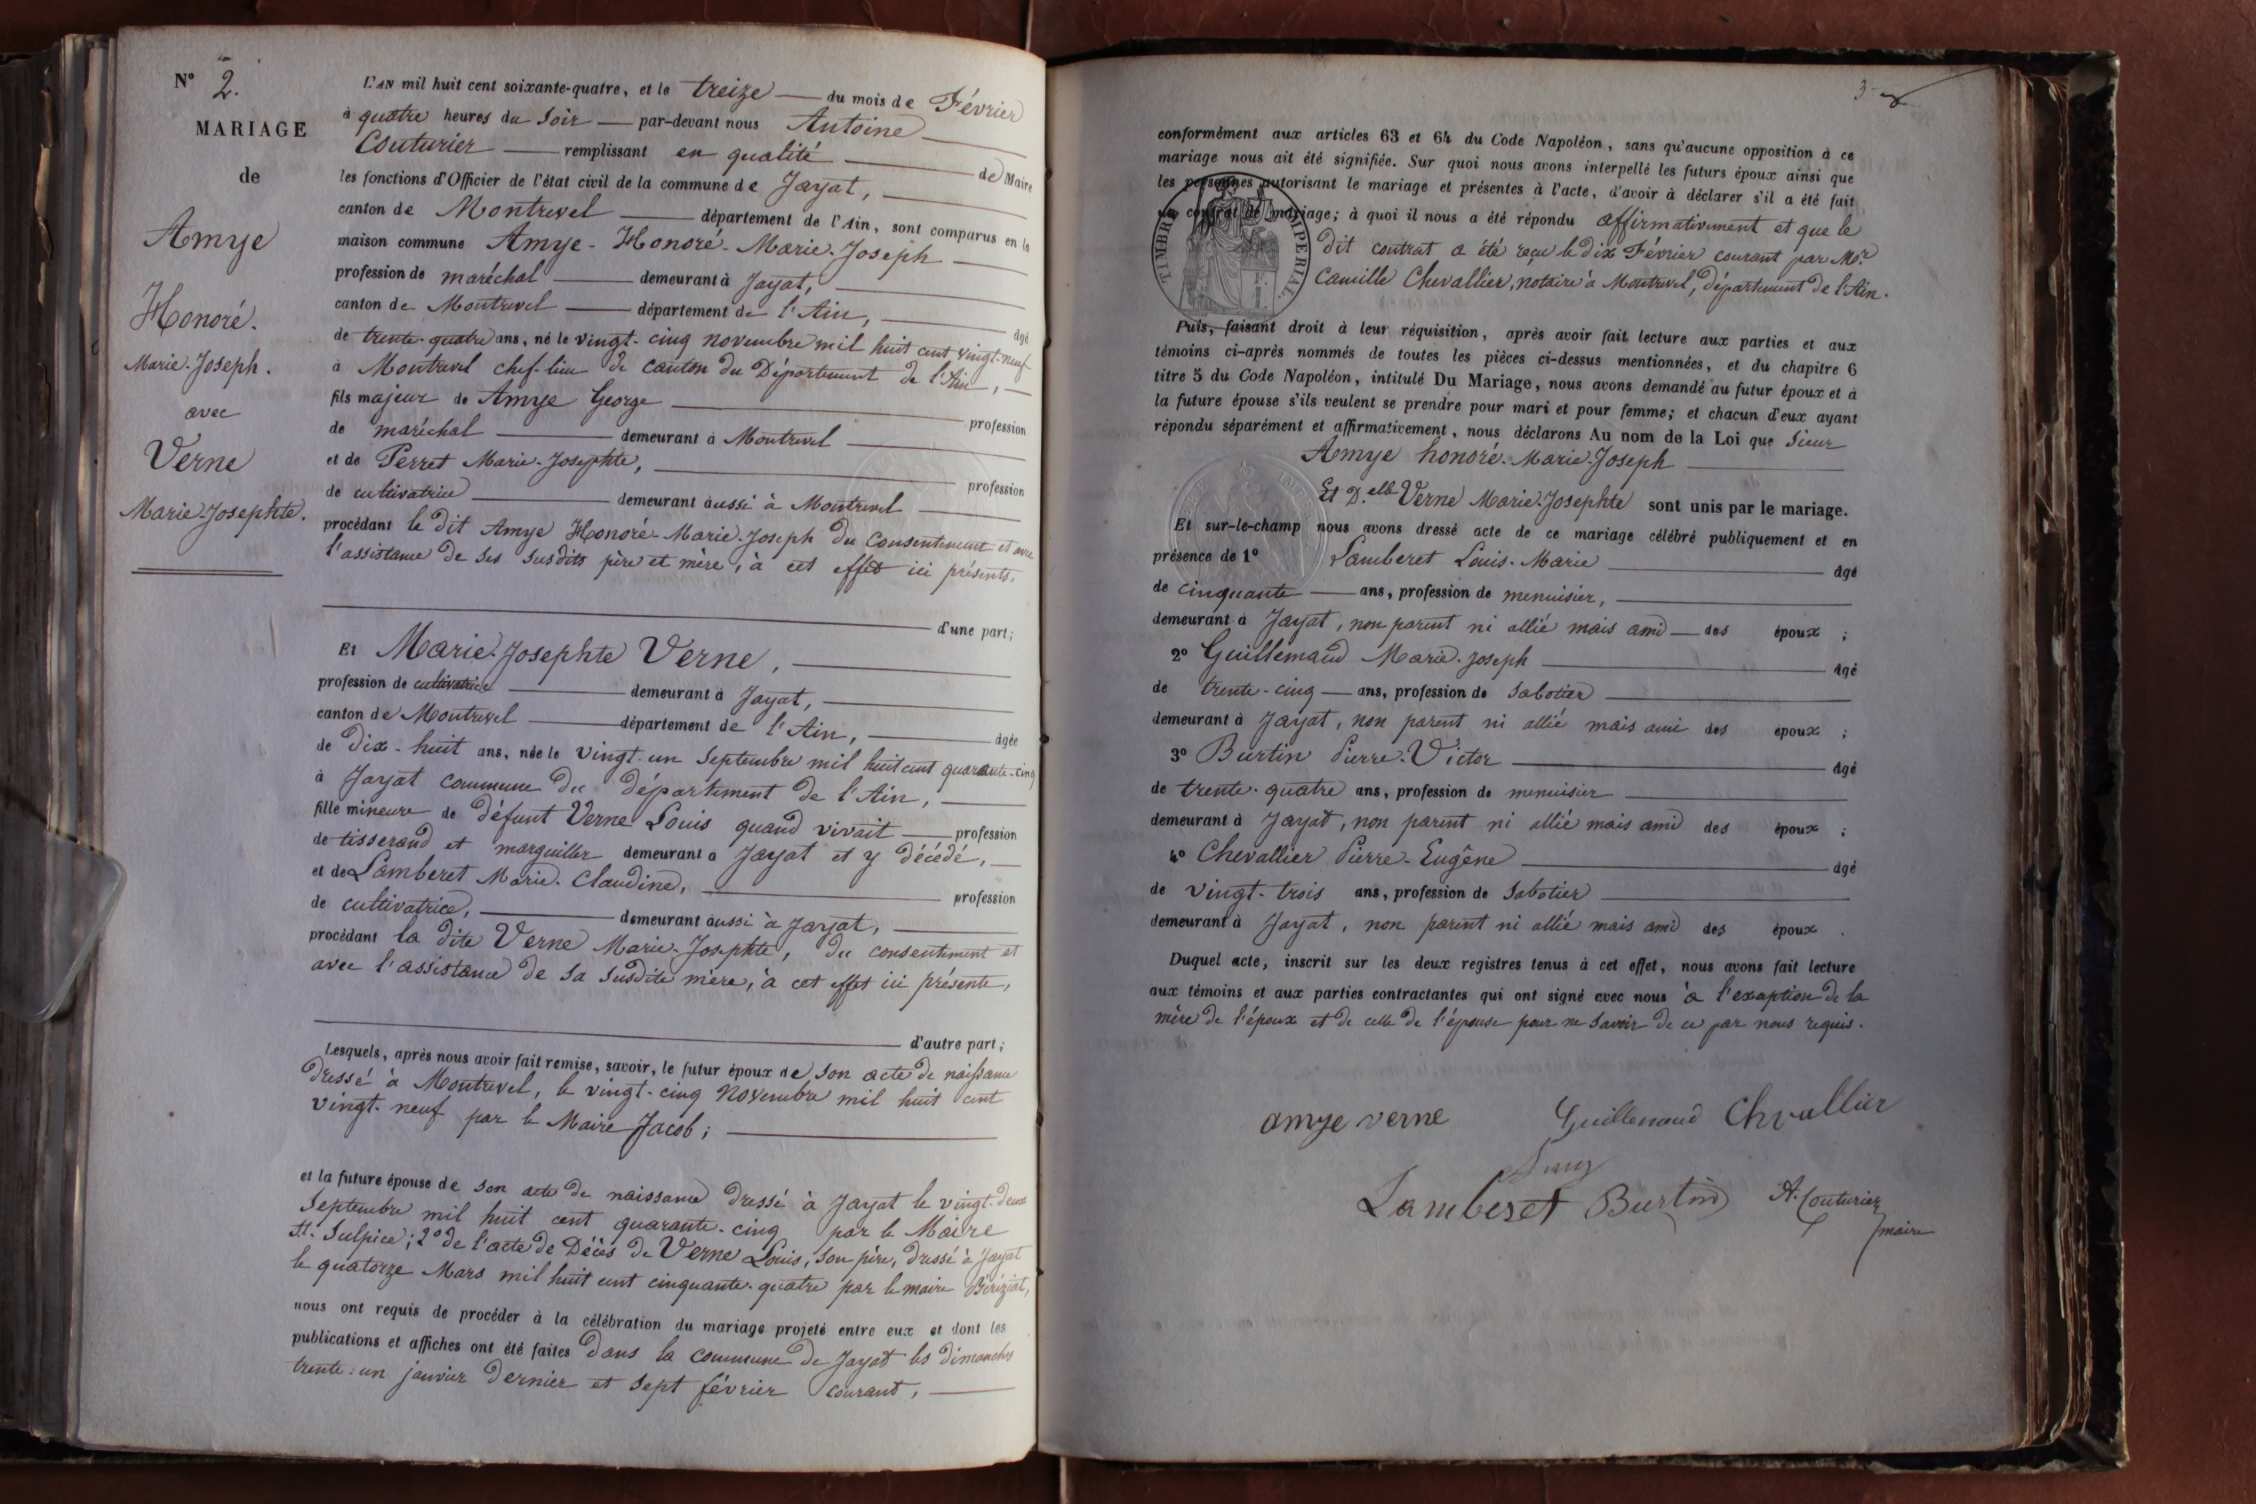 N° 2.
MARIAGE
de
Amye
Honoré.
Marie-Joseph.
avec
Verne
Marie-Josephte.
L'AN mil huit cent soixante-quatre, et le treize du mois de Février
à quatre heures du soir par-devant nous Antoine
Couturier remplissant en qualité de Maire
les fonctions d'Officier de l'état civil de la commune de Jayat,
canton de Montrevel département de l'Ain, sont comparus en la
maison commune Amye-Honoré-Marie-Joseph
profession de maréchal demeurant à Jayat,
canton de Montrevel département de l'Ain, âgé
de trente-quatre ans, né le vingt-cinq novembre mil huit cent vingt-neuf
à Montrevel chef-lieu de canton du Département de l'Ain,
fils majeur de Amye George profession
de maréchal demeurant à Montrevel
et de Perret Marie-Josephte, profession
de cultivatrice demeurant aussi à Montrevel
procédant le dit Amye Honoré-Marie-Joseph du consentement et avec
l'assistance de ses susdits père et mère, à cet effet ici présents,
d'une part;
Et Marie-Josephte Verne,
profession de cultivatrice demeurant à Jayat,
canton de Montrevel département de l'Ain, âgée
de dix-huit ans, née le vingt-un septembre mil huit cent quarante-cinq
à Jayat commune du département de l'Ain,
fille mineure de défunt Verne Louis quand vivait profession
de tisserand et marguiller demeurant a Jayat et y décédé,
et de Lamberet Marie-Claudine, profession
de cultivatrice, demeurant aussi à Jayat,
procédant la dite Verne Marie-Josephte, du consentement et
avec l'assistance de sa susdite mère, à cet effet ici présente,
d'autre part;
Lesquels, après nous avoir fait remise, savoir, le futur époux de son acte de naissance
dressé à Montrevel, le vingt-cinq novembre mil huit cent
vingt-neuf par le Maire Jacob;
et la future épouse de son acte de naissance dressé à Jayat le vingt-deux
Septembre mil huit cent quarante-cinq par le Maire
St. Sulpice; 2° de l'acte de Décès de Verne Louis, son père, dressé à Jayat
le quatorze Mars mil huit cent cinquante-quatre par le maire Biriziat,
nous ont requis de procéder à la célébration du mariage projeté entre eux et dont les
publications et affiches ont été faites dans la commune de Jayat les dimanches
trente-un janvier dernier et sept février courant,
3
conformément aux articles 63 et 64 du Code Napoléon, sans qu'aucune opposition à ce
mariage nous ait été signifiée. Sur quoi nous avons interpellé les futurs époux ainsi que
les personnes autorisant le mariage et présentes à l'acte, d'avoir à déclarer s'il a été fait
un contrat de mariage; à quoi il nous a été répondu affirmativement et que le
dit contrat a été reçu le dix Février courant par Mr.
Camille Chevallier, notaire à Montrevel, département de l'Ain.
TIMBRE IMPERIAL.
Puis, faisant droit à leur réquisition, après avoir fait lecture aux parties et aux
témoins ci-après nommés de toutes les pièces ci-dessus mentionnées, et du chapitre 6
titre 5 du Code Napoléon, intitulé Du Mariage, nous avons demandé au futur époux et à
la future épouse s'ils veulent se prendre pour mari et pour femme; et chacun d'eux ayant
répondu séparément et affirmativement, nous déclarons Au nom de la Loi que sieur
Amye honoré-Marie-Joseph
Et D.elle Verne Marie-Josephte sont unis par le mariage.
Et sur-le-champ nous avons dressé acte de ce mariage célébré publiquement et en
présence de 1° Lamberet Louis-Marie âgé
de cinquante ans, profession de menuisier,
demeurant à Jayat, non parent ni allié mais ami des époux ;
2° Guillemaud Marie-Joseph âgé
de trente-cinq ans, profession de sabotier
demeurant à Jayat, non parent ni allié mais ami des époux ;
3° Burtin Pierre-Victor âgé
de trente-quatre ans, profession de menuisier
demeurant à Jayat, non parent ni allié mais ami des époux ;
4° Chevallier Pierre-Eugène âgé
de vingt-trois ans, profession de sabotier
demeurant à Jayat, non parent ni allié mais ami des époux .
Duquel acte, inscrit sur les deux registres tenus à cet effet, nous avons fait lecture
aux témoins et aux parties contractantes qui ont signé avec nous à l'exception de la
mère de l'époux et de celle de l'épouse pour ne savoir de ce par nous requis.
amye verne Guillemaud Chvallier
Lamberet Burtin A. Couturier
maire